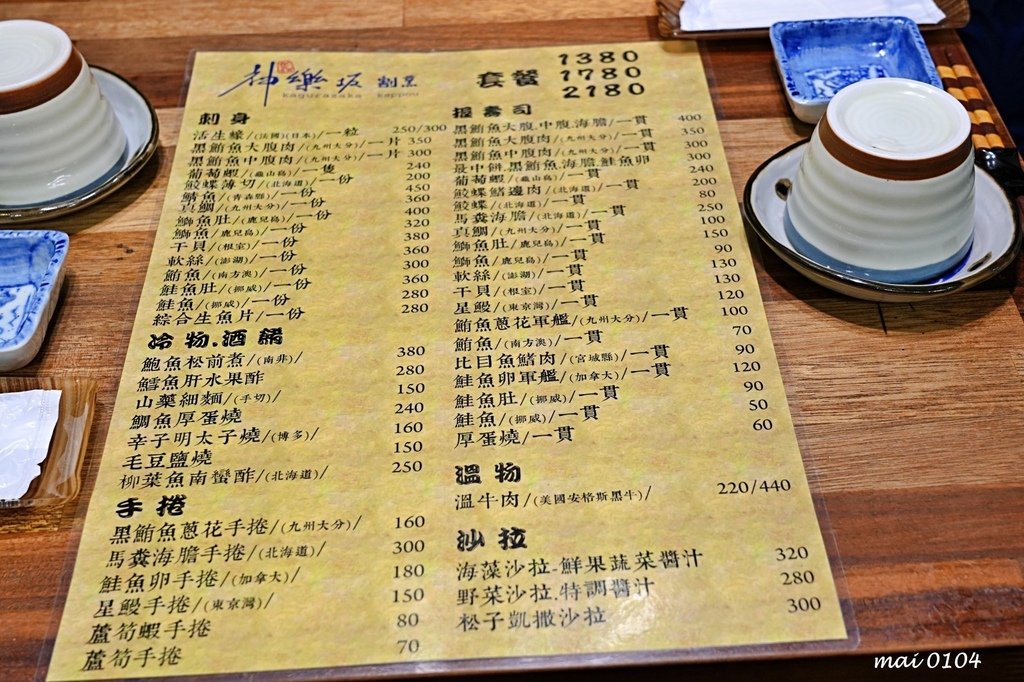 神樂坂 割烹
kagurazaka kappou
套餐 1380
1780
2180
刺身
活生蠔/(法國)(日本)/一粒 250/300
黑鮪魚大腹肉/(九州大分)/一片 350
黑鮪魚中腹肉/(九州大分)/一片 300
葡萄蝦/(龜山島)/一隻 240
鮫鰈薄切/(北海道)/一份 200
鯖魚/(青森縣)/一份 450
真鯛/(九州大分)/一份 360
鰤魚肚/(鹿兒島)/一份 400
鰤魚/(鹿兒島)/一份 320
干貝/(根室)/一份 380
軟絲/(澎湖)/一份 360
鮪魚/(南方澳)/一份 300
鮭魚肚/(挪威)/一份 360
鮭魚/(挪威)/一份 280
綜合生魚片/一份 280
冷物.酒餚
鮑魚松前煮/(南非)/ 380
鱈魚肝水果酢 280
山藥細麵/(手切)/ 150
鯛魚厚蛋燒 240
辛子明太子燒/(博多)/ 160
毛豆鹽燒 150
柳葉魚南蠻酢/(北海道)/ 250
手捲
黑鮪魚蔥花手捲/(九州大分)/ 160
馬糞海膽手捲/(北海道)/ 300
鮭魚卵手捲/(加拿大)/ 180
星鰻手捲/(東京灣)/ 150
蘆筍蝦手捲 80
蘆筍手捲 70
握壽司
黑鮪魚大腹.中腹.海膽/一貫 400
黑鮪魚大腹肉/(九州大分)/一貫 350
黑鮪魚中腹肉/(九州大分)/一貫 300
最中餅.黑鮪魚.海膽.鮭魚卵 300
葡萄蝦/(龜山島)/一貫 240
鮫鰈鰭邊肉/(北海道)/一貫 200
鮫鰈/(北海道)/一貫 80
馬糞海膽/(北海道)/一貫 250
真鯛/(九州大分)/一貫 100
鰤魚肚/(鹿兒島)/一貫 150
鰤魚/(鹿兒島)/一貫 90
軟絲/(澎湖)/一貫 130
干貝/(根室)/一貫 130
星鰻/(東京灣)/一貫 120
鮪魚蔥花軍艦/(九州大分)/一貫 100
鮪魚/(南方澳)/一貫 70
比目魚鰭肉/(宮城縣)/一貫 90
鮭魚卵軍艦/(加拿大)/一貫 120
鮭魚肚/(挪威)/一貫 90
鮭魚/(挪威)/一貫 50
厚蛋燒/一貫 60
溫物
溫牛肉/(美國安格斯黑牛)/ 220/440
沙拉
海藻沙拉-鮮果蔬菜醬汁 320
野菜沙拉.特調醬汁 280
松子凱撒沙拉 300
mai 0104